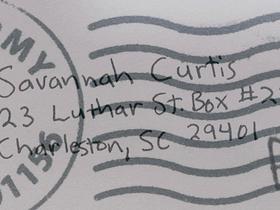 ARMY
Savannah Curtis
23 Luthar St. Box #2
Charleston, SC 29401
01136